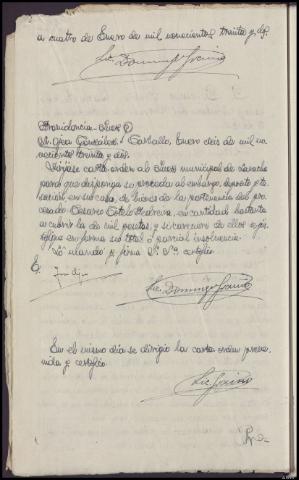 a cuatro de Enero de mil novecientos treinta y dos.
Lic. Domingo
Providencia Juez
Sr. Gea González. Carballo, Enero seis de mil no
vecientos treinta y dos.
Diríjase carta-orden al Juez municipal de
para que disponga se proceda al embargo, depósito y ta
sación, en su caso, de bienes de la pertenencia del pro
cesado Cesareo Cotelo, en cantidad bastante
a cubrir la de mil pesetas, y si careciere de ellos se jus
tifique en forma su total o parcial insolvencia.
Lo mandó y firma S. Sª certifico.
E.
Lic. Domingo
En el mismo día se dirigió la carta-orden preve
nida y certifico.
Lic.